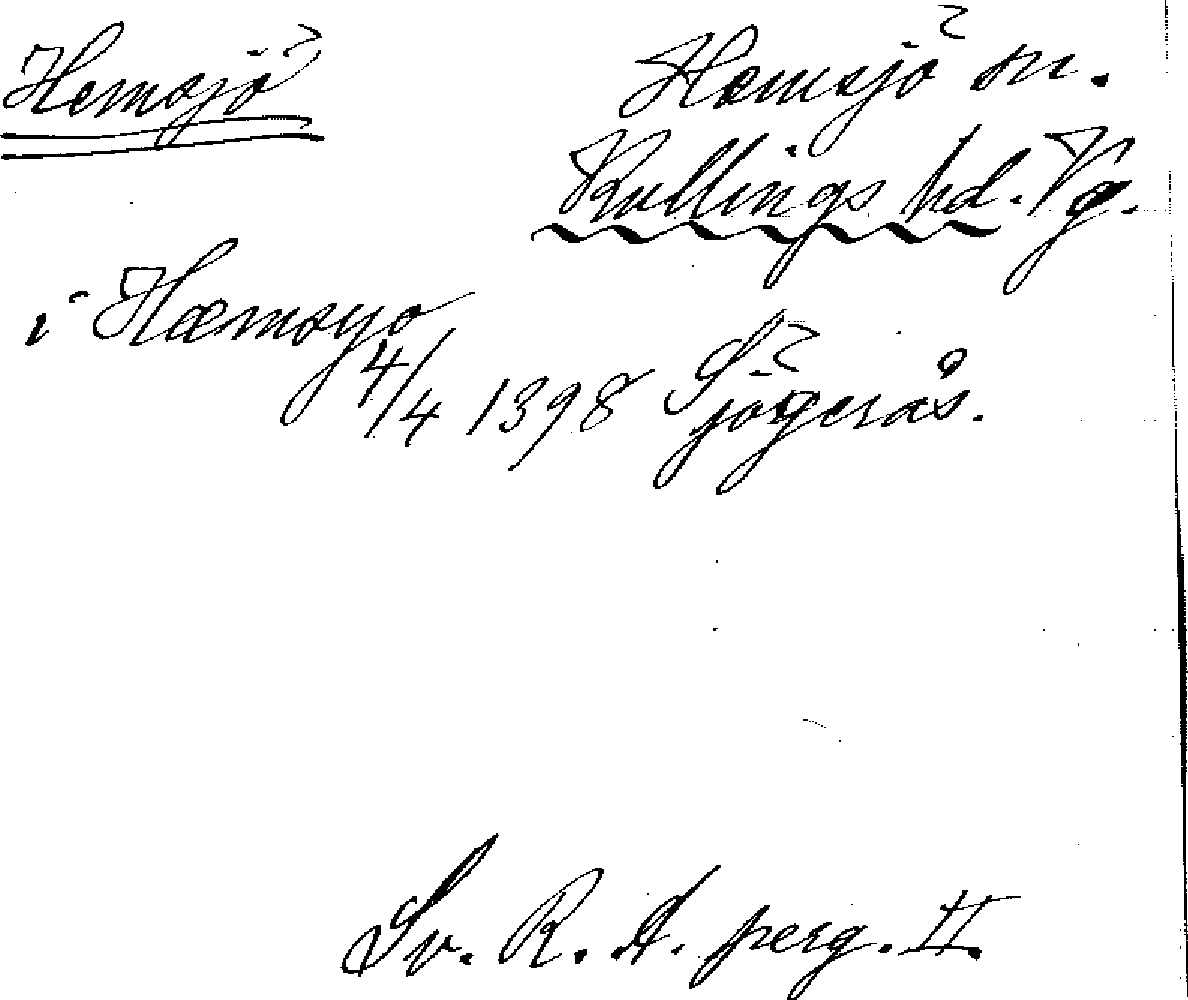 Hemsjö
Hemsjö sn.
Kullings hd. Vg.
i Hæmsyo
4/4 1398 Sjögerås.
Sv. R. A. perg. II.